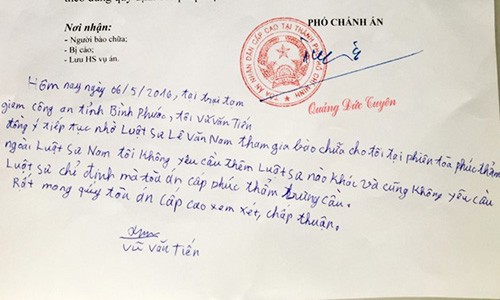 Nơi nhận:
- Người bào chữa;
- Bị cáo;
- Lưu HS vụ án.
PHÓ CHÁNH ÁN
TÒA ÁN NHÂN DÂN CẤP CAO TẠI THÀNH PHỐ HỒ CHÍ MINH
Quảng Đức Tuyên
Hôm nay ngày 06/5/2016, tại trại tạm
giam công an tỉnh Bình Phước, tôi Vũ Văn Tiến
đồng ý tiếp tục nhờ Luật sư Lê Văn Nam tham gia bào chữa cho tôi tại phiên tòa phúc thẩm
ngoài Luật sư Nam tôi không yêu cầu thêm Luật sư nào khác và cũng không yêu cầu
Luật sư chỉ định mà tòa án cấp phúc thẩm trưng cầu.
Rất mong quý tòa án cấp cao xem xét, chấp thuận.
Vũ Văn Tiến